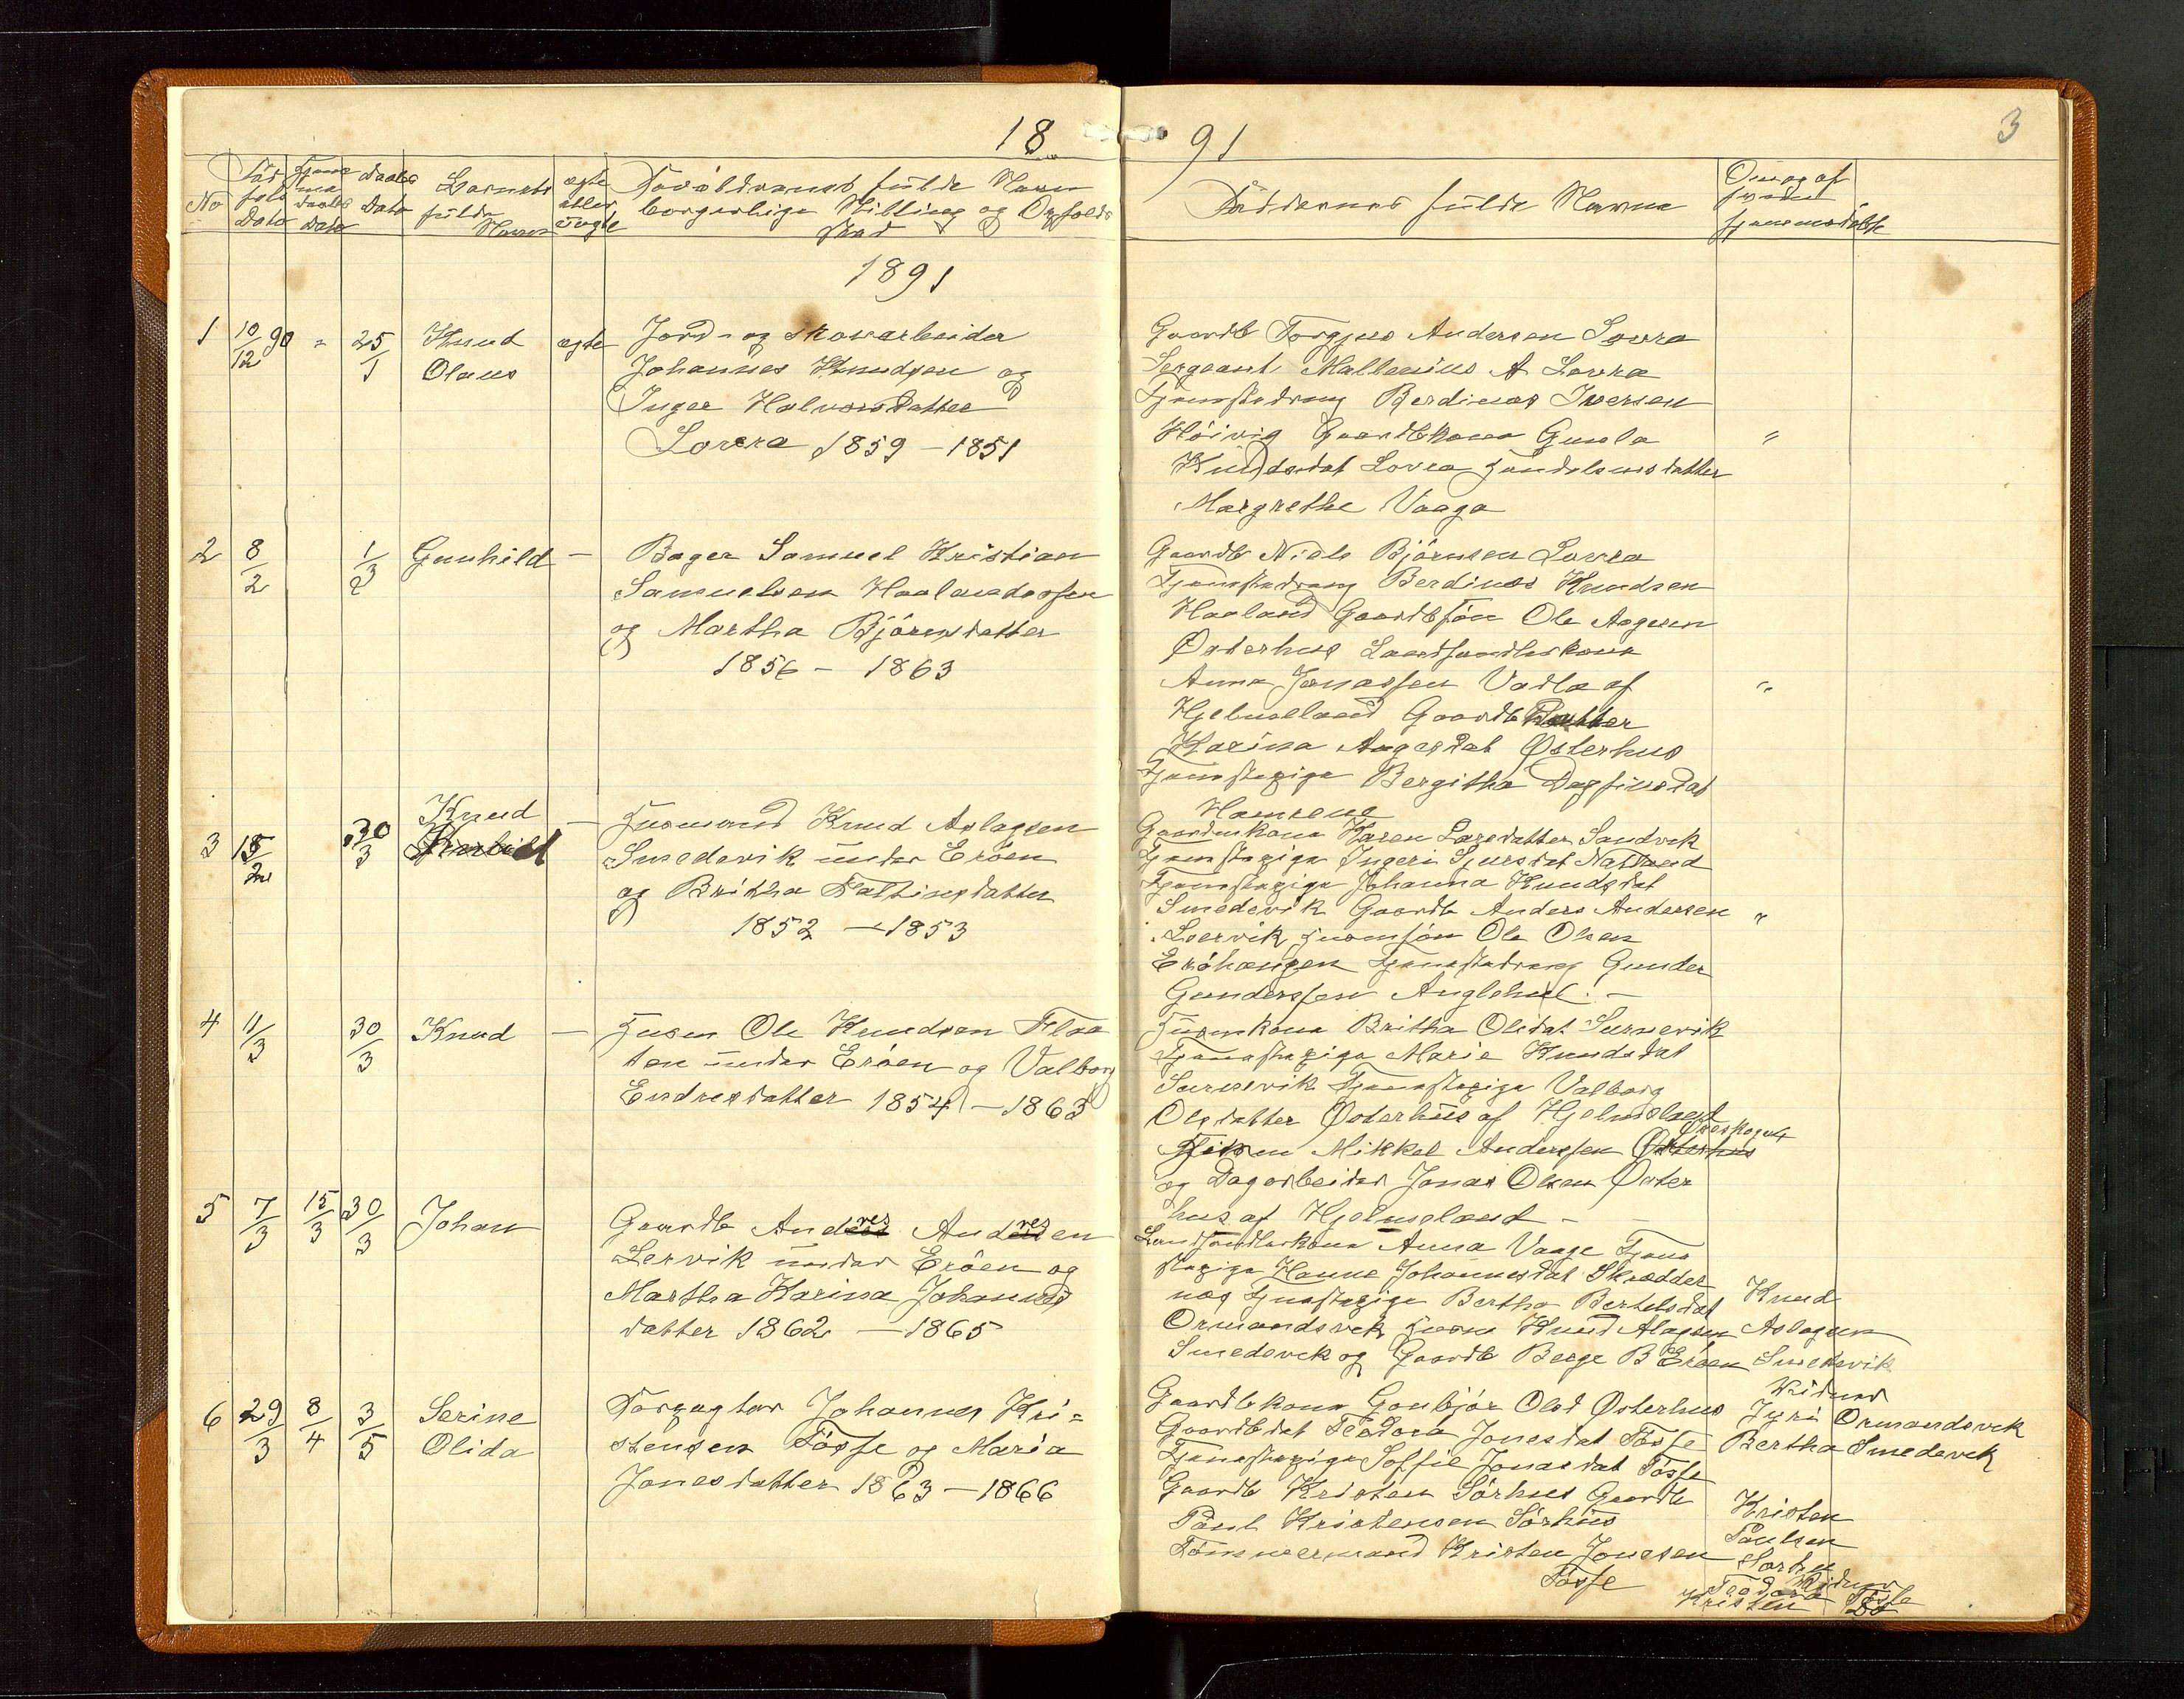 18 91
3
No
Fød
sels
Dato
Hjemme
daabs
Dato
Daabs
Dato
Barnets
fulde
Navn
ægte
eller
uægte
Forældrenes fulde Navn
borgerlige Stilling og Opholds
Sted
Faddernes fulde Navne
1891
1 10/12 90 " 25/1 Knud ægte Jord- og skovarbeider
Olaus Johannes Knudsen og
Inger Halvorsdatter
Lovra 1859 - 1851
Gaardb Torgjus Andersen Lovra
Sergeant Mallenius A Lovra
Tjenestedreng Berdinas Iversen
Høivig Gaardbkona Gunla
Knudsdat Lovra
Margrethe Vaaga
"
2 8/2 1/3 Gunhild - Bager Samuel Kristian
Samuelsen Haalandsosen
og Martha Bjørnsdatter
1856 - 1863
Gaardb Niels Bjørnsen Lovra
Tjenestedreng Berdinas Knudsen
Haaland Gaardbsøn Ole Aagesen
Østerhus Landhandlerkona
Anna Jonassen Vadla af
Hjelmeland Gaardb Datter
Karina Aagesdat Østerhus
Tjenestepige Bergitha Dagfinsdat
Hamrene
"
3 15/2 30/3 Knud - Husmand Knud Aslagsen
Smedsvik under Erøen
og Britha Faltinsdatter
1852 - 1853
Gaardmkona Karen Larsdatter Sandvik
Tjenestepige Ingeri Sjursdat
Tjenestepige Johanna Knudsdat
Smedsvik Gaardb Anders Andersen
Leervik Husmsøn Ole Olsen
Erøhaugen Tjenestedreng Gunder
Gundersen -
"
4 11/3 30/3 Knud - Husm Ole Knudsen Flaa
ten under Erøen og Valborg
Endresdatter 1854 - 1863
Husmkona Britha Olsdat Survevik
Tjenestepige Marie Knudsdat
Survevik Tjenestepige Valborg
Olsdatter Østerhus af Hjelmeland
Mikkel Anderssen Østerhus
og Dagarbeider Jonas Olsen Øster
hus af Hjelmeland -
5 7/3 15/3 30/3 Johan Gaardb Anders Andersen
Lervik under Erøen og
Martha Karina Johannes
datter 1862 - 1865
Landhandlerkona Anna Vaage Tjene
stepige Hanne Johannesdat Skrødder
næs Tjenestepige Bertha Bertelsdat
Ormandsvek Husm Knud Alagsen
Smedsvek og Gaardb Berge B Erøen
Knud
Aslagsen
Smedsvik
Vidner
Juri Ormandsvek
Bertha Smedsvek
6 29/3 8/4 3/5 Serine Forpagter Johannes Kri=
Olida stensen Fosse og Maria
Jonesdatter 1863 - 1866
Gaardbkona Gonbjør Olsd Østerhus
Gaardbdat Teodora Jonesdat Fosse
Tjenestepige Soffie Jonasdat Fosse
Gaardb Kristen Sørhus Gaardb
Paul Kristensen Sørhus
Tømmermand Kristen Jonesen
Fosse
Kristen
Paulsen
Sørhus
Vidner
Teodora Fosse
Kristen Do